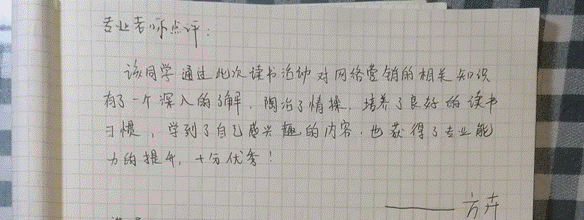 专业老师点评：
该同学通过此次读书活动对网络营销的相关知识
有了一个深入的了解，陶冶了情操，培养了良好的读书
习惯，学到了自己感兴趣的内容，也获得了专业能
力的提升，十分优秀！
——方卉